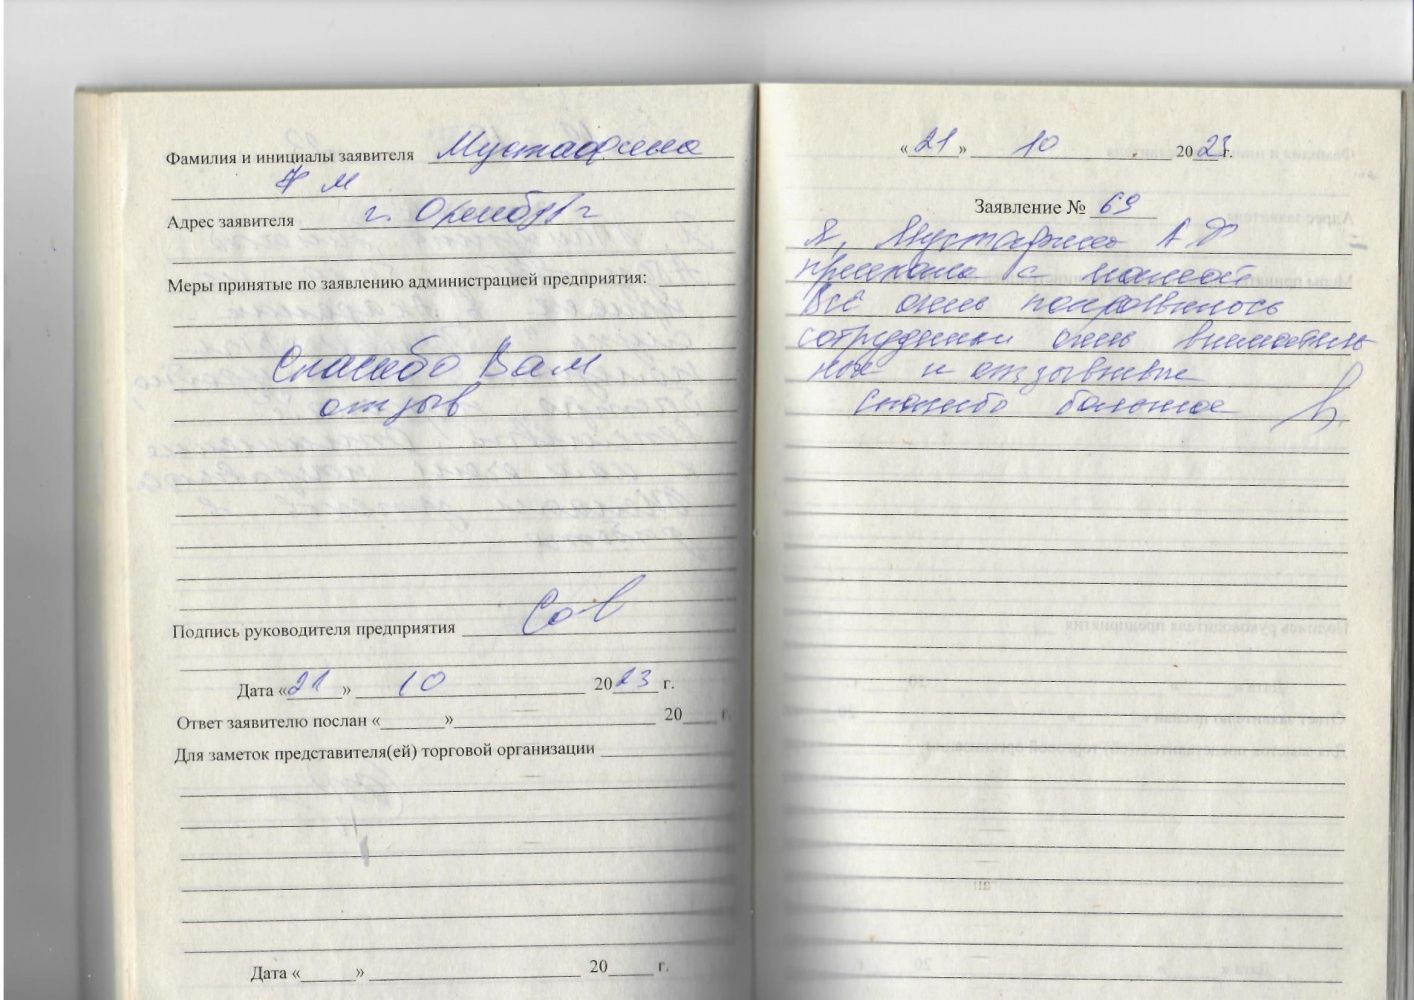 Фамилия и инициалы заявителя Мустафина
Ф М
Адрес заявителя г. Оренбург
Меры принятые по заявлению администрацией предприятия:
Спасибо Вам
отзыв
Подпись руководителя предприятия
Дата «21» 10 2023 г.
Ответ заявителю послан «» 20 г.
Для заметок представителя(ей) торговой организации
Дата «» 20 г.
«21» 10 2023 г.
Заявление № 69
Я, Мустафина А Ф
приехала с мамой
Всё очень понравилось
сотрудники очень вниматель
ные и отзывчивые
спасибо большое